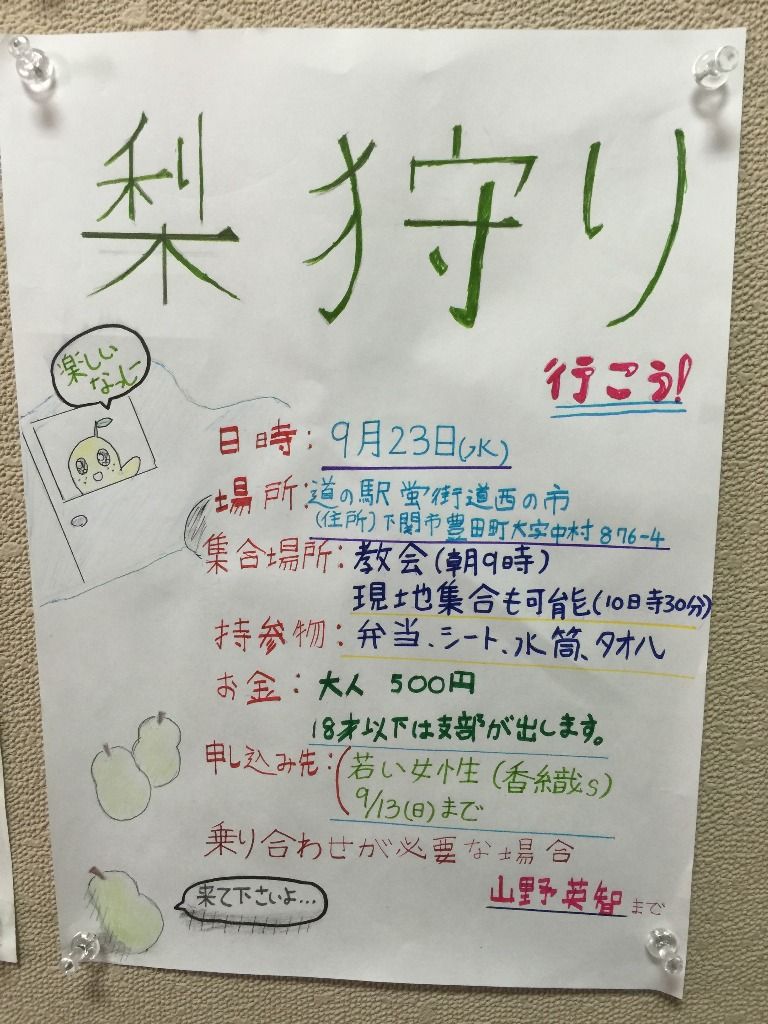 梨狩り
行こう!
楽しい
なっしー
日時：9月23日(水)
場所：道の駅 蛍街道西の市
(住所)下関市豊田町大字中村876-4
集合場所：教会(朝9時)
現地集合も可能(10時30分)
持参物：弁当、シート、水筒、タオル
お金：大人 500円
18才以下は支部が出します。
申し込み先：若い女性(香織s)
9/13(日)まで
乗り合わせが必要な場合
山野英智まで
来て下さいよ…